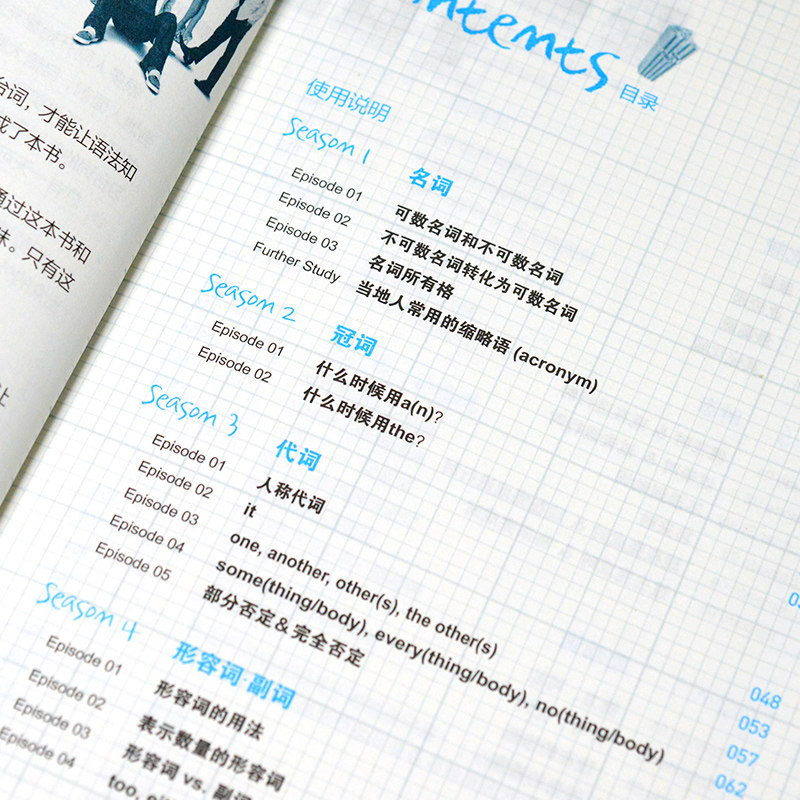 台词，才能让语法知
成了本书。
通过这本书和
味。只有这
让
目录
使用说明
Season 1 名词
Episode 01 可数名词和不可数名词
Episode 02 不可数名词转化为可数名词
Episode 03 名词所有格
Further Study 当地人常用的缩略语 (acronym)
Season 2 冠词
Episode 01 什么时候用a(n)?
Episode 02 什么时候用the?
Season 3 代词
Episode 01 人称代词
Episode 02 it
Episode 03 one, another, other(s), the other(s)
Episode 04 some(thing/body), every(thing/body), no(thing/body)
Episode 05 部分否定&完全否定
Season 4 形容词·副词
Episode 01 形容词的用法
Episode 02 表示数量的形容词
Episode 03 形容词 vs. 副词
Episode 04 too,
048
053
057
062